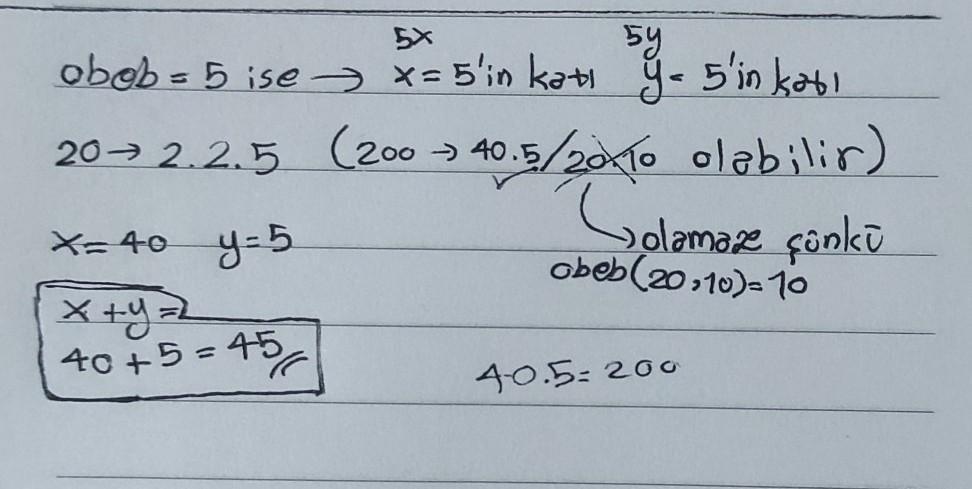 5x 5y
obeb = 5 ise → x = 5'in katı y = 5'in katı
20 → 2.2.5 (200 → 40.5/20x10 olabilir)
x = 40 y = 5 olamaz çünkü
obeb(20,10) = 10
x + y =
40 + 5 = 45
40.5 = 200